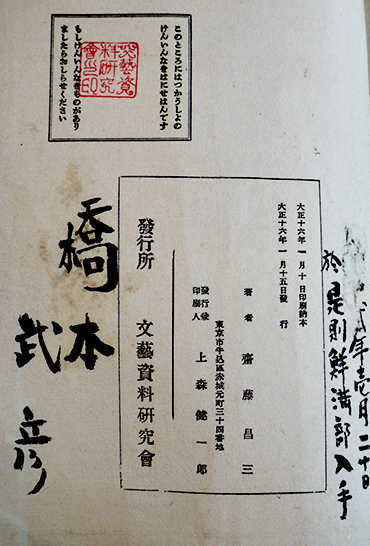 このところにはつかうしよの
けんいんなきはにせはんです
文藝資
料研究
會之印
もしけんいんなきものがあり
ましたらおしらせください
大正十六年一月十日印刷納本
大正十六年一月十五日發行
著者 齋藤昌三
東京市牛込區赤城元町三十四番地
發行兼
印刷人 上森健一郎
發行所 文藝資料研究會
年壱月二十日
於是則鮮満部入手
橋本武彦